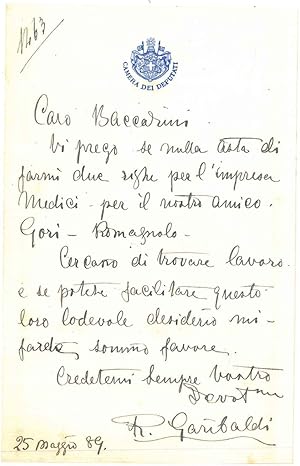 1463
CAMERA DEI DEPUTATI
Caro Baccarini
Vi prego se nulla osta di
farmi due righe per l'impresa
Medici - per il nostro amico.
Gori - Romagnolo -
Cercano di trovare lavoro
e se potete facilitare questo
loro lodevole desiderio mi
farete sommo favore.
Credetemi sempre vostro
Devotmo
R. Garibaldi
25 Maggio 89.